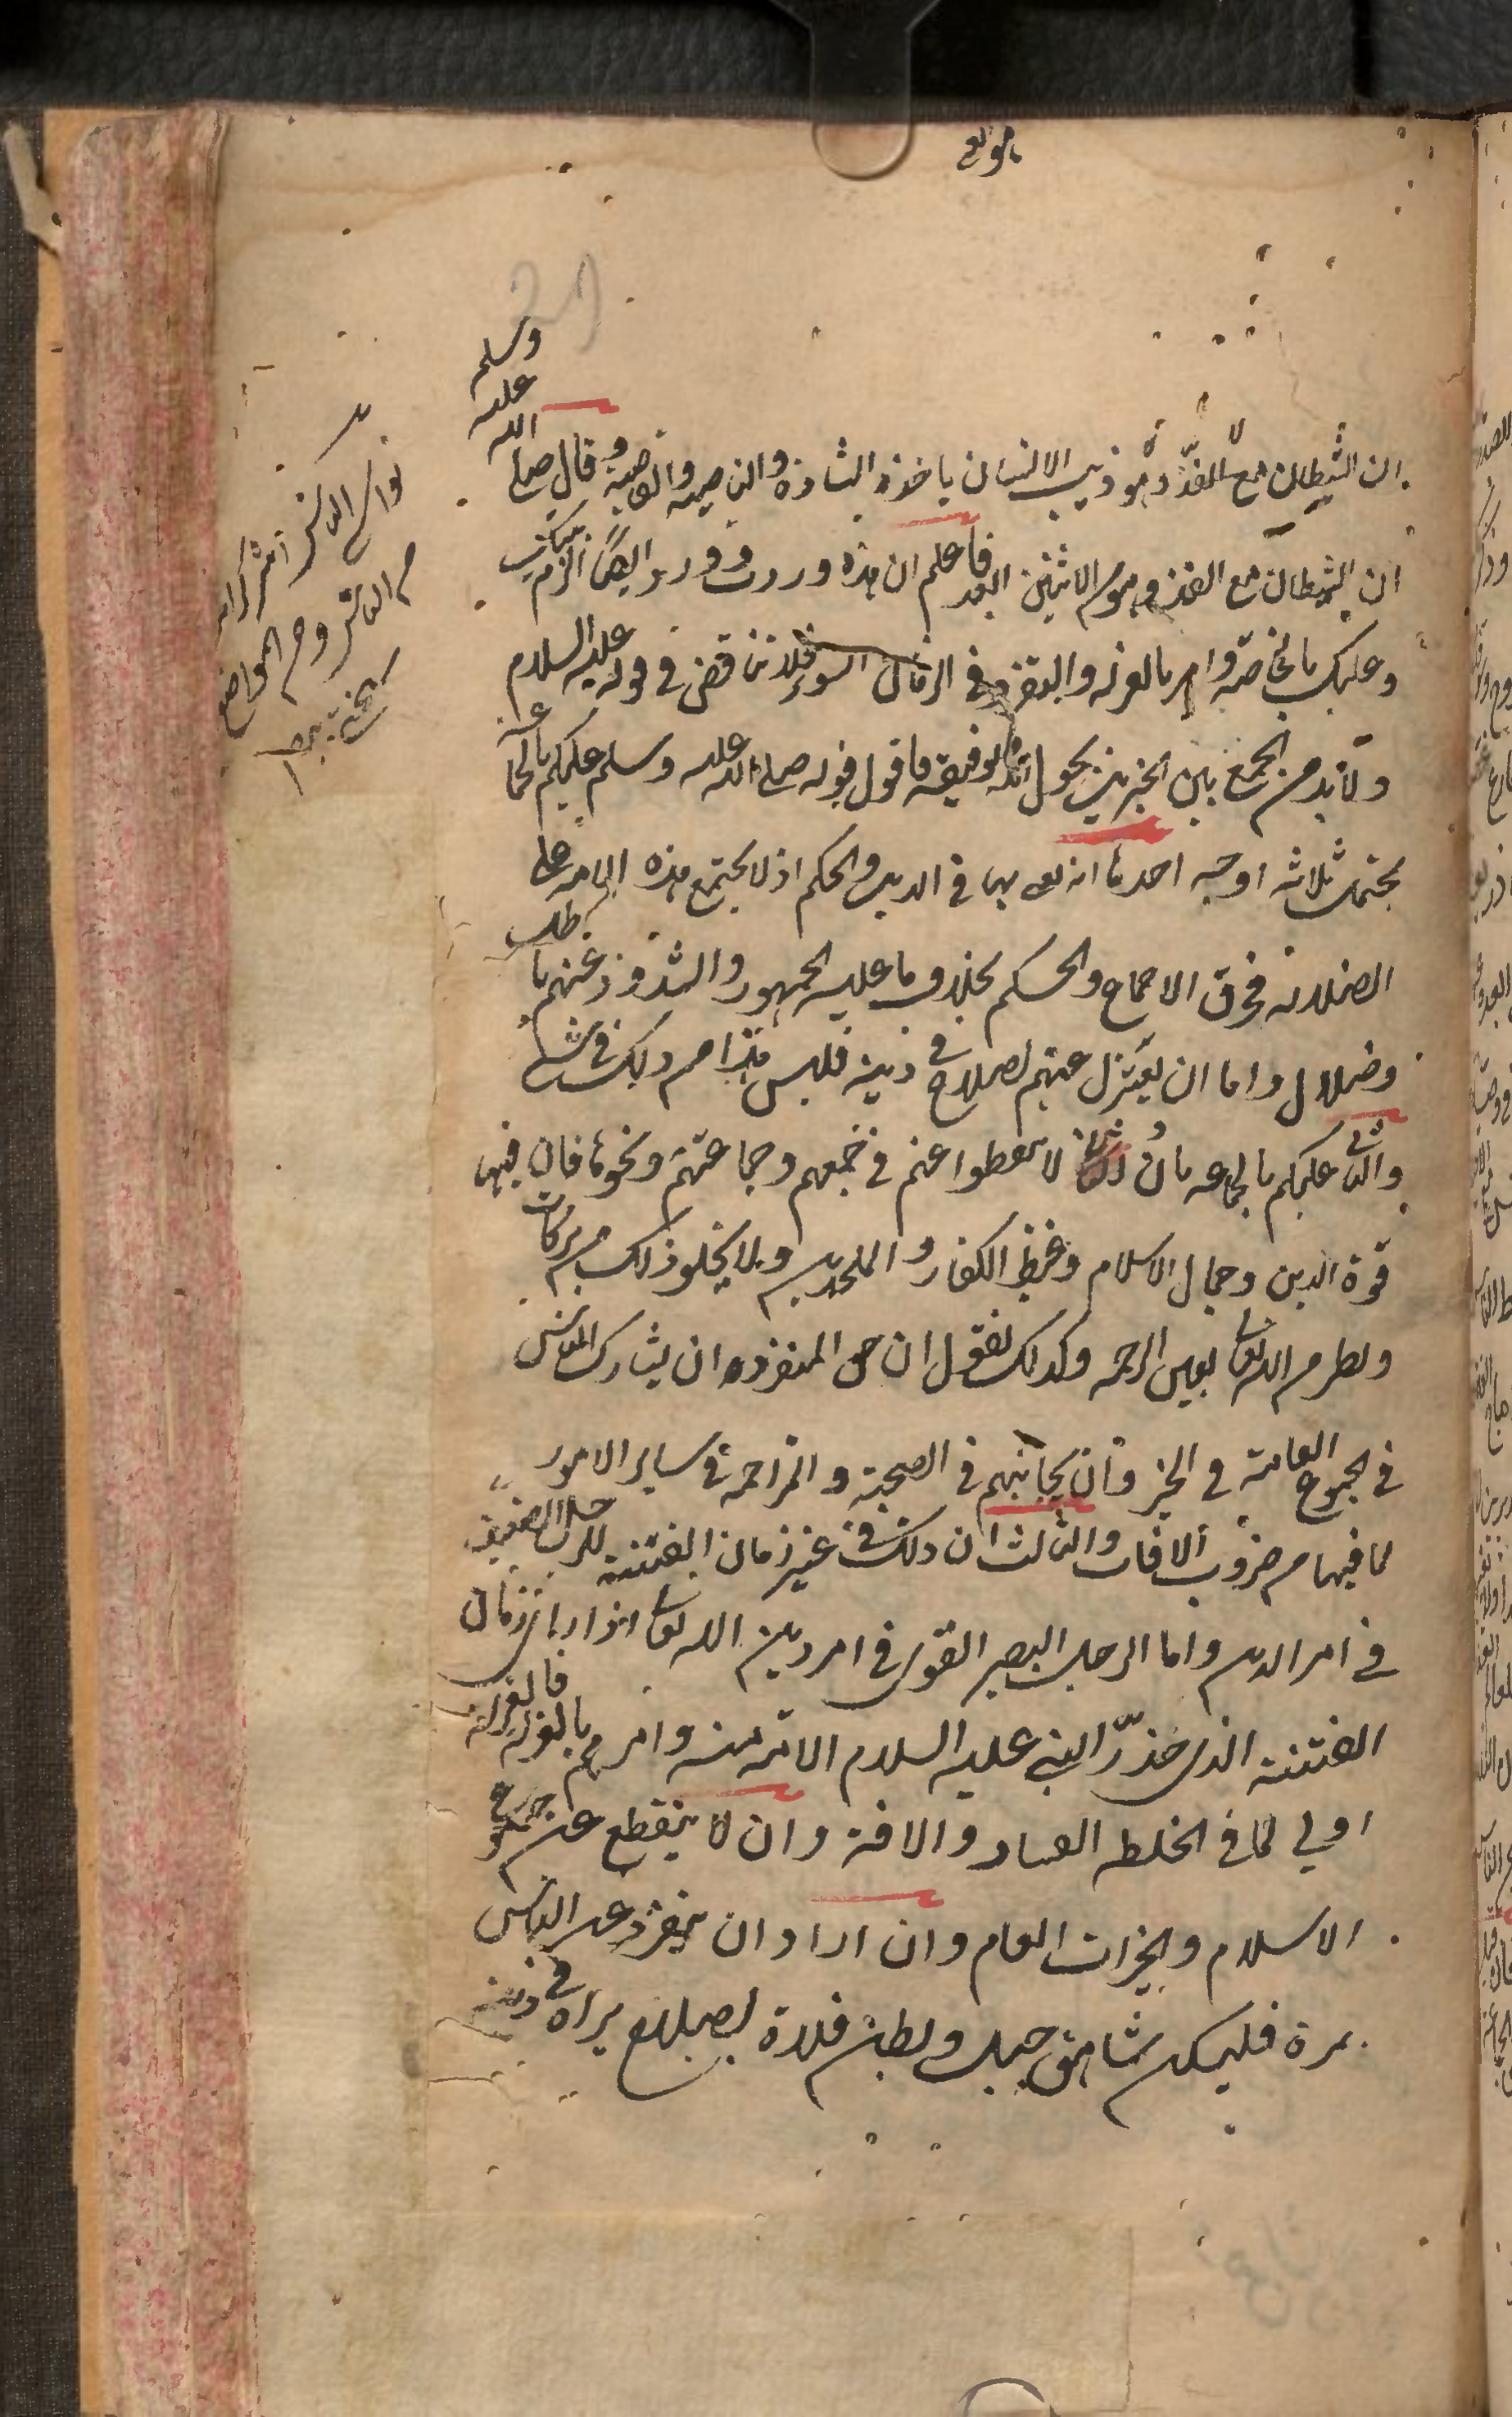 ان الشيطان مع الفذ وهو ذيب الانسان ياخذ الشاذة والناصية والقاصية وقال صلى الله عليه وسلم
ان الشيطان مع الفذ وهو من الاثنين ابعد فاعلم ان هذه وردت وورد ايضا الزم بيتك
وعليك بالخاصة وامر بالعزلة والتفرد في الزمان السوء فلا تناقض في قوله عليه السلام
ولا بد من الجمع بين الخبرين بحول الله وتوفيقه فاقول قوله صلى الله عليه وسلم عليكم بالجماعة
يحتمل ثلاثه اوجه احدها انه يعني بها في الدين والحكم اذ لا يجتمع هذه الامة على
الضلالة فخرق الاجماع والحكم بخلاف ما عليه الجمهور والشذوذ عنهم باطل
وضلال واما ان يعتزل عنهم لصلاح في دينه فليس هذا من ذلك في شئ
والثاني عليكم بالجماعه بان لا تنقطعوا عنهم في جمعهم وجماعتهم ونحوها فان فيها
قوة الدين وجمال الاسلام وغيظ الكفار والملحدين ولا يخلو ذلك من بركات
ونظر من الله تعالى بعين الرحمة وكذلك نقول ان حق المنفرد ان يشارك الناس
في الجموع العامة في الخير وان يجانبهم في الصحبة والمزاحمة في ساير الامور
لما فيها من ضروب الافات والثالث ان ذلك في غير زمان الفتنة للرجل الضعيف
في امر الدين واما الرجل البصير القوي في امر دين الله تعالى اذا راى زمان
الفتنة الذي حذر النبي عليه السلام الامة منه وامرهم بالعزلة فالعزلة
اولي لما في الخلطه الفساد والافة وان لا ينقطع عن جموع
الاسلام والخيرات العام وان اراد ان ينفرد عن الناس
بمرة فليسكن شاهق جبل وبطن فلاة لصلاح يراه في دينه